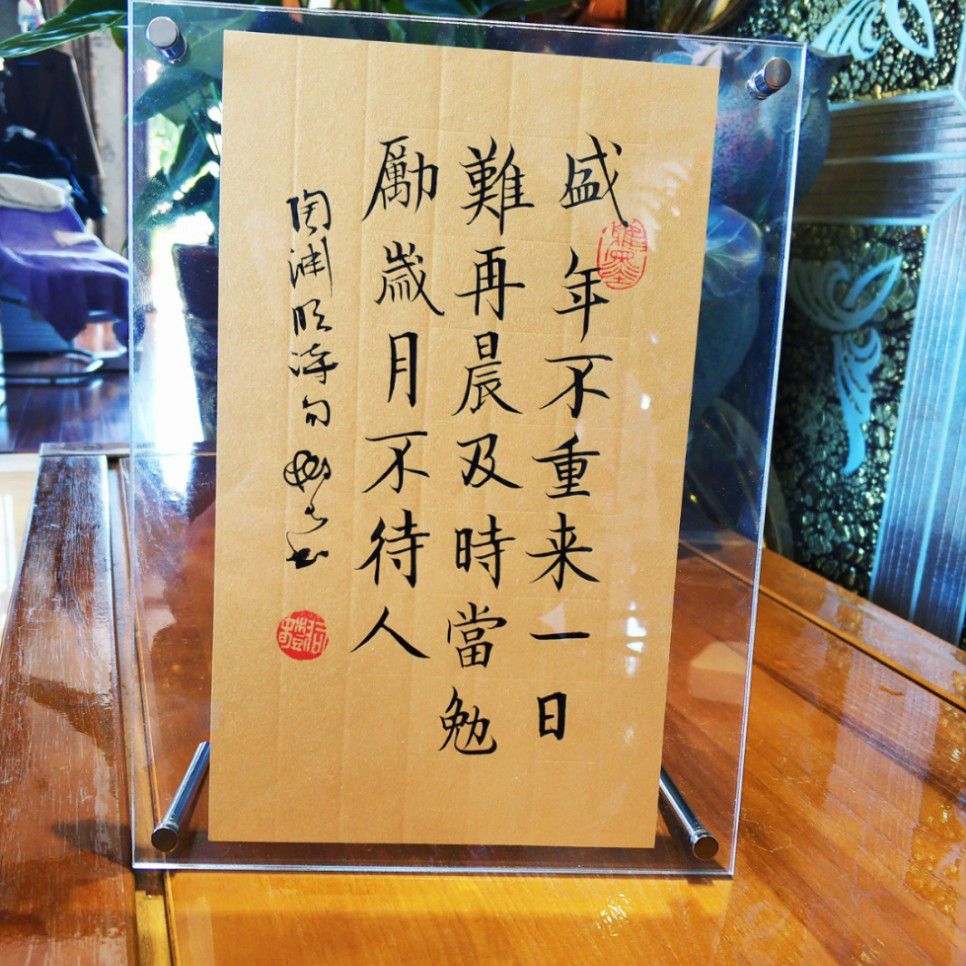 盛年不重来一日
難再晨及時當勉
勵歲月不待人
陶渊明诗句